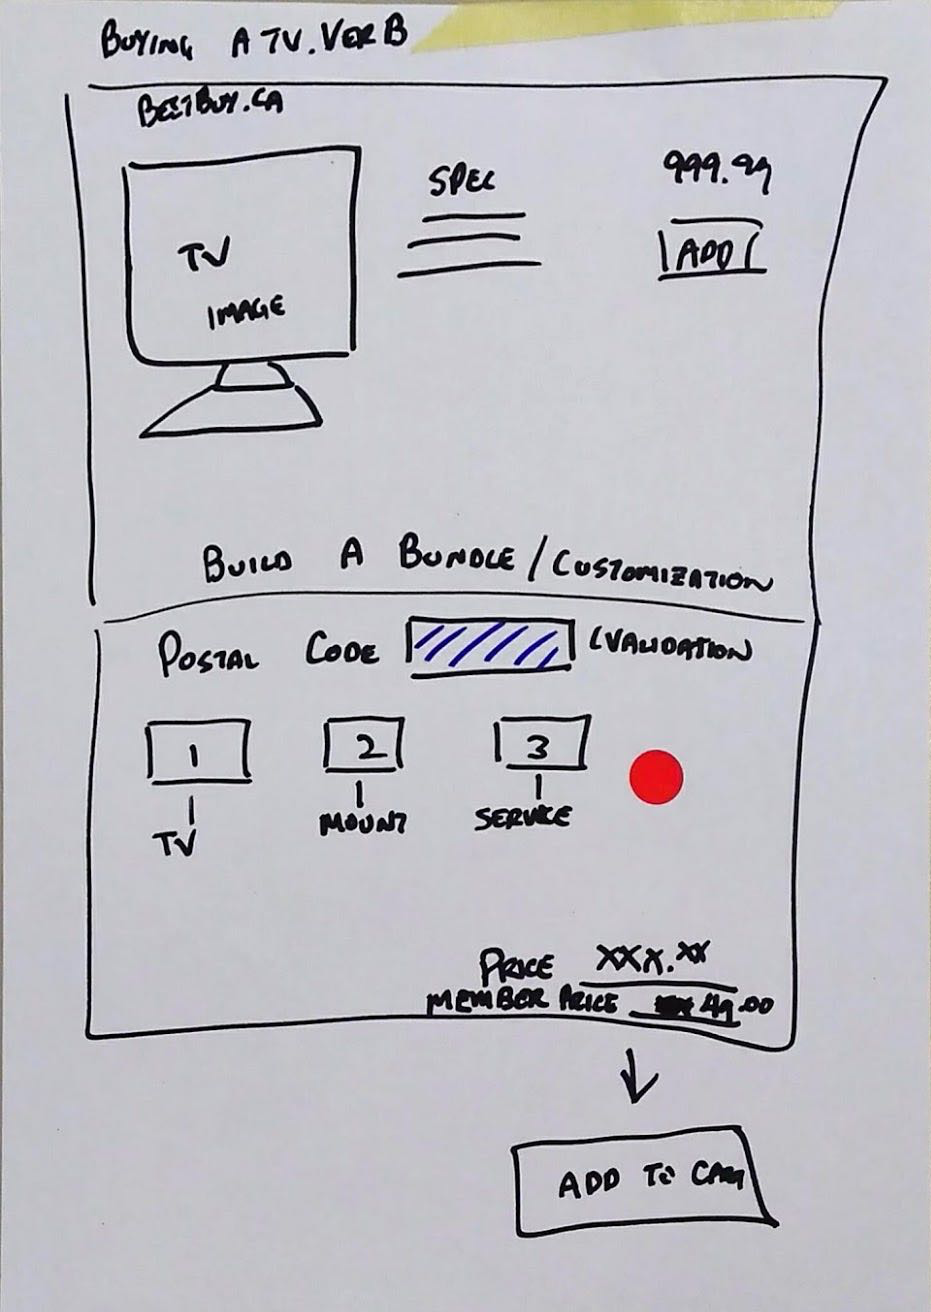 BUYING A TV. VER B
BESTBUY.CA
TV
IMAGE
SPEC
999.99
ADD
BUILD A BUNDLE / CUSTOMIZATION
POSTAL CODE (VALIDATION
1 2 3
TV MOUNT SERVICE
PRICE XXX.XX
MEMBER PRICE 49.00
ADD TO CART